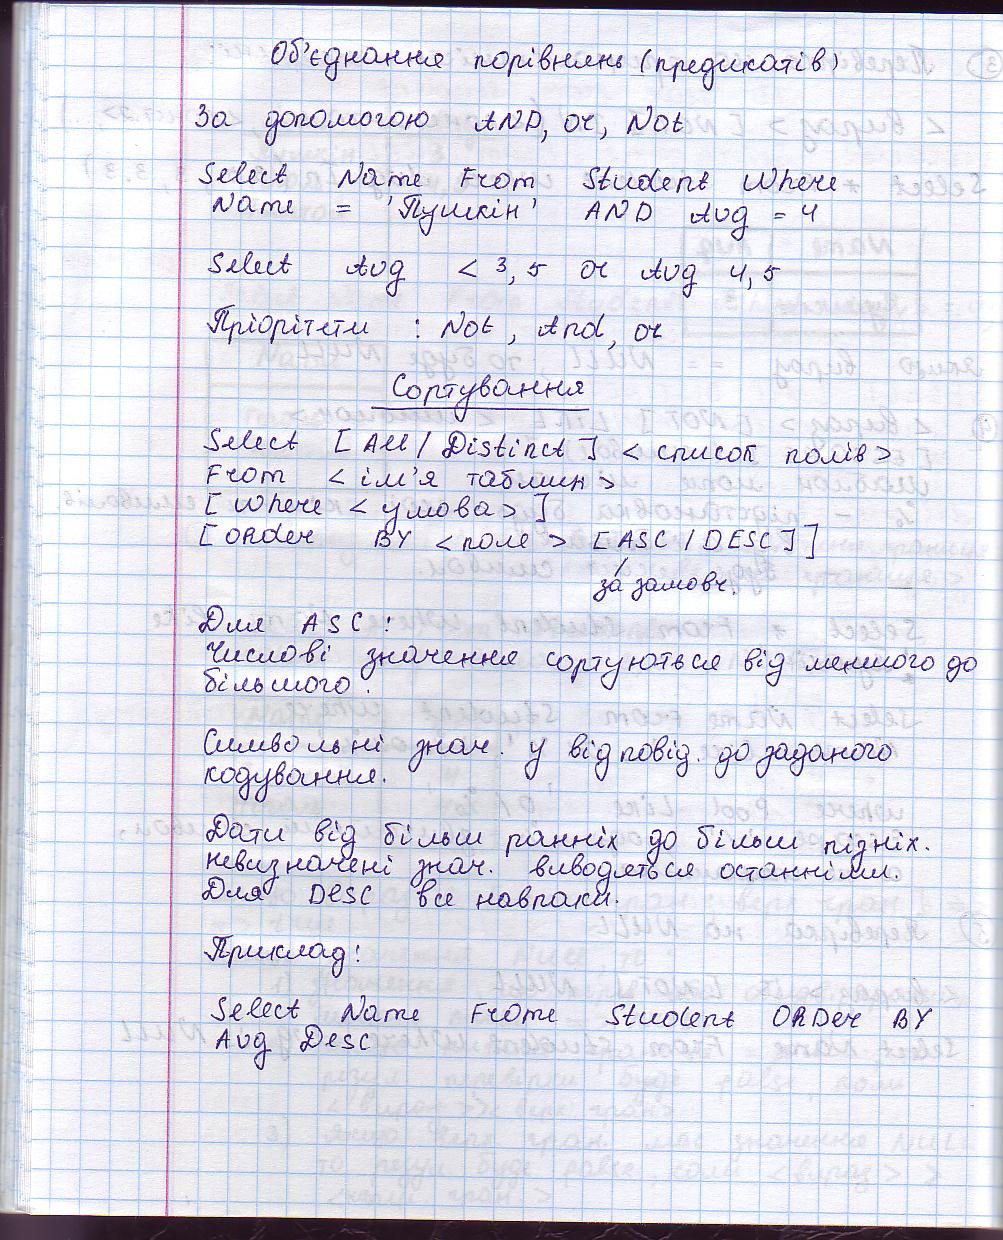 Об'єднання порівнянь (предикатів)
За допомогою AND, or, Not
Select Name From Student Where
Name = 'Пушкін' AND Avg = 4
Select Avg < 3,5 or Avg 4,5
Пріорітети : Not, And, or
Сортування
Select [All / Distinct] < список полів >
From < ім'я таблиц >
[Where < умова > ]
[Order BY < поле > [ASC / DESC] ]
за замовч.
Для ASC :
Числові значення сортуються від меншого до
більшого.
Символьні знач. у відповід. до заданого
кодування.
Дати від більш ранніх до більш пізніх.
невизначені знач. виводяться останніми.
Для DESC все навпаки.
Приклад :
Select Name From Student ORDer BY
Avg Desc